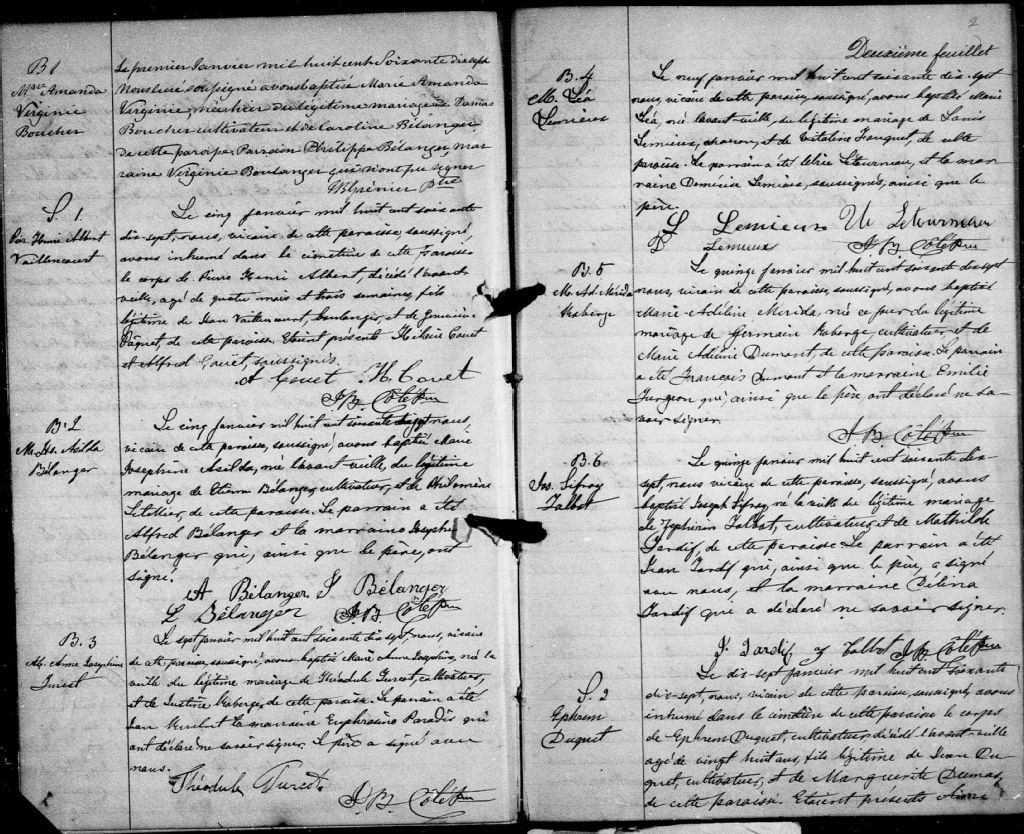 B 1
Mrie Amanda
Virginie
Boucher
Le premier Janvier mil huit cent Soixante dix sept
Nous curé soussigné avons baptisé Marie Amanda
Virginie, née hier du légitime mariage de Damas
Boucher cultivateur et de Caroline Bélanger
de cette paroisse Parrain Philippe Bélanger, mar
raine Virginie Boulanger qui n'ont pu signer
Ptre
S. 1
Pier. Henri Albert
Vaillencourt
Le cinq janvier mil huit cent soixante
dix-sept, nous, vicaire de cette paroisse, soussigné,
avons inhumé dans le cimetière de cette paroisse
le corps de Pierre Henri Albert, décédé l'avant
veille, agé de quatre mois et trois semaines, fils
légitime de Jean Vaillencourt, boulanger, et de
Paquet, de cette paroisse. Etaient présents Hilaire Couet
et Alfred Couet, soussignés.
A Couet H. Couet
J. B. Côté Ptre
B. 2
M. Js. Asilda
Bélanger
Le cinq janvier mil huit cent soixante sept nous,
vicaire de cette paroisse, soussigné, avons baptisé Marie
Josephine Asilda, née l'avant veille, du légitime
mariage de Etienne Bélanger, cultivateur, et de Philomène
Letellier, de cette paroisse. Le parrain a été
Alfred Bélanger et la marraine Josephine
Bélanger qui, ainsi que le père, ont
signé.
A Bélanger J Bélanger
E Bélanger J. B. Côté Ptre
B. 3
M. Anne Josephine
Turcot
Le sept janvier mil huit cent soixante dix-sept nous, vicaire
de cette paroisse, soussigné, avons baptisé Marie Anne Josephine, née la
veille du légitime mariage de Théodule Turcot, cultivateur,
et de Justine Roberge, de cette paroisse. Le parrain a été
Jean et la marraine Euphrosine Paradis qui
ont déclaré ne savoir signer. Le père a signé avec
nous.
Théodule Turcot
J. B. Côté Ptre
2
Deuxième feuillet
B. 4
M. Léa
Lemieux
Le neuf janvier mil huit cent soixante dix-sept
nous, vicaire de cette paroisse, soussigné, avons baptisé Marie
Léa, née l'avant veille, du légitime mariage de Louis
Lemieux, charron, et de Vitaline Fouquet, de cette
paroisse. Le parrain a été Ulric Létourneau, et la mar
raine Démérise Lemieux, soussignés, ainsi que le
père.
L Lemieux U. Létourneau
D Lemieux J. B. Côté Ptre
B. 5
M. Ad. Mérida
Roberge
Le quinze janvier mil huit cent soixante dix-sept
nous, vicaire de cette paroisse, soussigné, avons baptisé
Marie Adeline Mérida, née ce jour du légitime
mariage de Germain Roberge, cultivateur et de
Marie Adeline Dumont, de cette paroisse. Le parrain
a été François Dumont et la marraine Emilie
Turgeon qui, ainsi que le père, ont déclaré ne sa-
voir signer.
J. B. Côté Ptre
B. 6
Jos. Sifroy
Talbot
Le quinze janvier mil huit cent soixante dix-
sept nous vicaire de cette paroisse, soussigné, avons
baptisé Joseph Sifroy, né la veille du légitime mariage
de Zéphirin Talbot, cultivateur, et de Mathilde
Tardif, de cette paroisse. Le parrain a été
Jean Tardif qui, ainsi que le père, a signé
avec nous, et la marraine Délina
Tardif qui a déclaré ne savoir signer.
J. Tardif Z Talbot J. B. Côté Ptre
S. 2
Ephrem
Duquet
Le dix janvier mil huit cent soixante
dix-sept, nous, vicaire de cette paroisse, soussigné, avons
inhumé dans le cimetière de cette paroisse le corps
de Ephrem Duquet, cultivateur décédé l'avant-veille
agé de vingt huit ans, fils légitime de Jean Du
quet, cultivateur, et de Marguerite Dumas,
de cette paroisse. Etaient présents